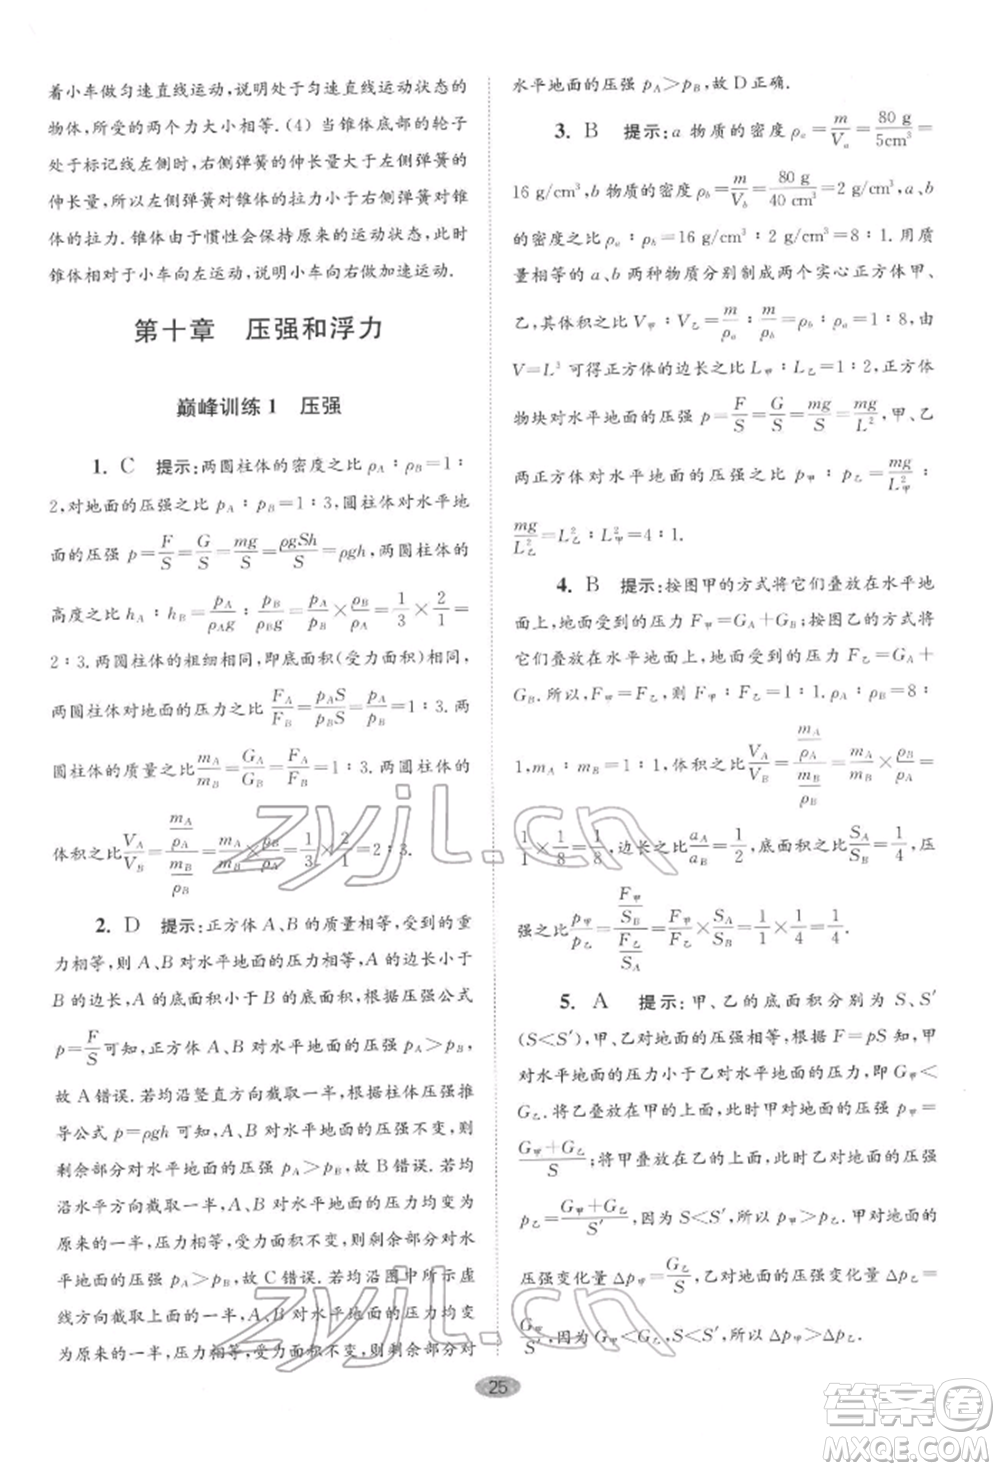 着小车做匀速直线运动,说明处于匀速直线运动状态的
物体,所受的两个力大小相等.(4) 当锥体底部的轮子
处于标记线左侧时,右侧弹簧的伸长量大于左侧弹簧的
伸长量,所以左侧弹簧对锥体的拉力小于右侧弹簧对锥
体的拉力.锥体由于惯性会保持原来的运动状态,此时
锥体相对于小车向左运动,说明小车向右做加速运动.
第十章 压强和浮力
巅峰训练1 压强
1. C 提示:两圆柱体的密度之比 ρA∶ρB=1∶
2,对地面的压强之比 pA∶pB=1∶3,圆柱体对水平地
面的压强 p=F/S=G/S=mg/S=ρgSh/S=ρgh,两圆柱体的
高度之比 hA∶hB=pA/ρAg∶pB/ρBg=pA/pB×ρB/ρA=1/3×2/1=
2∶3.两圆柱体的粗细相同,即底面积(受力面积)相同,
两圆柱体对地面的压力之比 FA/FB=pAS/pBS=pA/pB=1∶3.两
圆柱体的质量之比 mA/mB=GA/GB=FA/FB=1∶3.两圆柱体的
体积之比 VA/VB=(mA/ρA)/(mB/ρB)=mA/mB×ρB/ρA=1/3×2/1=2∶3.
2. D 提示:正方体 A、B 的质量相等,受到的重
力相等,则 A、B 对水平地面的压力相等,A 的边长小于
B 的边长,A 的底面积小于 B 的底面积,根据压强公式
p=F/S可知,正方体 A、B 对水平地面的压强 pA>pB,
故 A 错误.若均沿竖直方向截去一半,根据柱体压强推
导公式 p=ρgh 可知,A、B 对水平地面的压强不变,则
剩余部分对水平地面的压强 pA>pB,故 B 错误.若均
沿水平方向截去一半,A、B 对水平地面的压力均变为
原来的一半,受力面积不变,则剩余部分对水平地面的压强
pA>pB,故 C 错误.若均沿图中所示虚
线方向截取上面的一半,A、B 对水平地面的压力均变
为原来的一半,压力相等,受力面积不变,则剩余部分对
水平地面的压强 pA>pB,故 D 正确.
3. B 提示:a 物质的密度 ρa=m/Va=80 g/5cm³=
16 g/cm³,b 物质的密度 ρb=m/Vb=80 g/40 cm³=2 g/cm³,a、b
的密度之比 ρa∶ρb=16 g/cm³∶2 g/cm³=8∶1.用质
量相等的 a、b 两种物质分别制成两个实心正方体甲、
乙,其体积之比 V甲∶V乙=m/ρa∶m/ρb=ρb∶ρa=1∶8,由
V=L³ 可得正方体的边长之比 L甲∶L乙=1∶2,正方体
物块对水平地面的压强 p=F/S=G/S=mg/S=mg/L²,甲、乙
两正方体对水平地面的压强之比 p甲∶p乙=mg/L²甲∶
mg/L²乙=L²乙∶L²甲=4∶1.
4. B 提示:按图甲的方式将它们叠放在水平地
面上,地面受到的压力 F甲=GA+GB;按图乙的方式将
它们叠放在水平地面上,地面受到的压力 F乙=GA+
GB.所以,F甲=F乙,则 F甲∶F乙=1∶1.ρA∶ρB=8∶
1,mA∶mB=1∶1,体积之比 VA/VB=(mA/ρA)/(mB/ρB)=mA/mB×ρB/ρA=
1/1×1/8=1/8,边长之比 aA/aB=1/2,底面积之比 SA/SB=1/4,压
强之比 p甲/p乙=(F甲/SB)/(F乙/SA)=F甲/F乙×SA/SB=1/1×1/4=1/4.
5. A 提示:甲、乙的底面积分别为 S、S′
(S<S′),甲、乙对地面的压强相等,根据 F=pS 可知,甲
对水平地面的压力小于乙对水平地面的压力,即 G甲<
G乙.将乙叠放在甲的上面,此时甲对地面的压强 p甲=
G甲+G乙/S;将甲叠放在乙的上面,此时乙对地面的压强
p乙=G甲+G乙/S′,因为 S<S′,所以 p甲>p乙.甲对地面的
压强变化量 Δp甲=G乙/S,乙对地面的压强变化量 Δp乙=
G甲/S′,因为 G甲<G乙、S<S′,所以 Δp甲>Δp乙.
25
zyjl.cn
zyjl.cn
答案圈
MXQE.COM